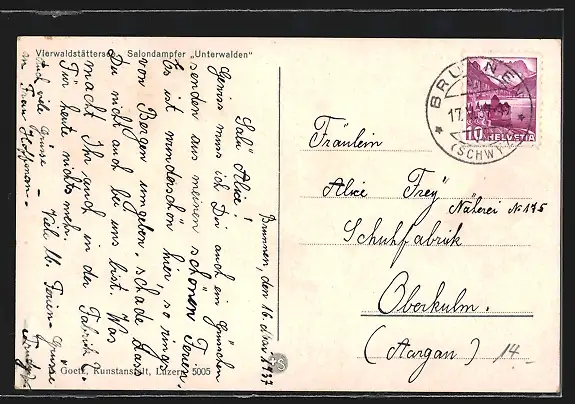 Vierwaldstättersee Salondampfer „Unterwalden"
Brunnen, den 16. 1937
Salü Alice!
Gewiss muss ich Dir auch ein Grüsschen
senden aus meinen schönen Ferien.
Es ist wunderschön hier, so rings
von Bergen umgeben, schade dass
Du nicht auch bei uns bist. Was
macht Ihr auch in der Fabrik?
Für heute nichts mehr.
Viel lb. Ferien-Grüsse
Auch viele Grüsse
Frau Hoffmann.
Goetz, Kunstanstalt, Luzern 5005
BRUNNEN
(SCHWYZ)
17.
10 HELVETIA
Fräulein
Alice Frey
Näherei No 145
Schuhfabrik
Oberkulm.
(Aargau)
14.